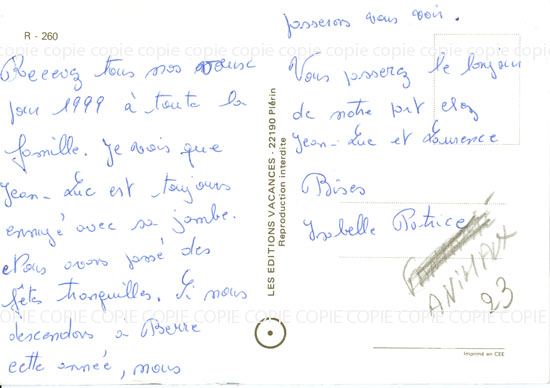 R - 260
Recevez tous nos voeux
pour 1999 à toute la
famille. Je vois que
Jean-Luc est toujours
ennuyé avec sa jambe.
Nous avons passé des
fêtes tranquilles. Si nous
descendons a Berre
cette année, nous
passerons vous voir.
Vous passerez le bonjour
de notre part chez
Jean-Luc et Laurence
Bises
Isabelle Patrice
ANIMAUX
23
LES EDITIONS VACANCES - 22190 Plérin
Reproduction interdite
Imprimé en CEE
COPIE COPIE COPIE COPIE COPIE COPIE COPIE